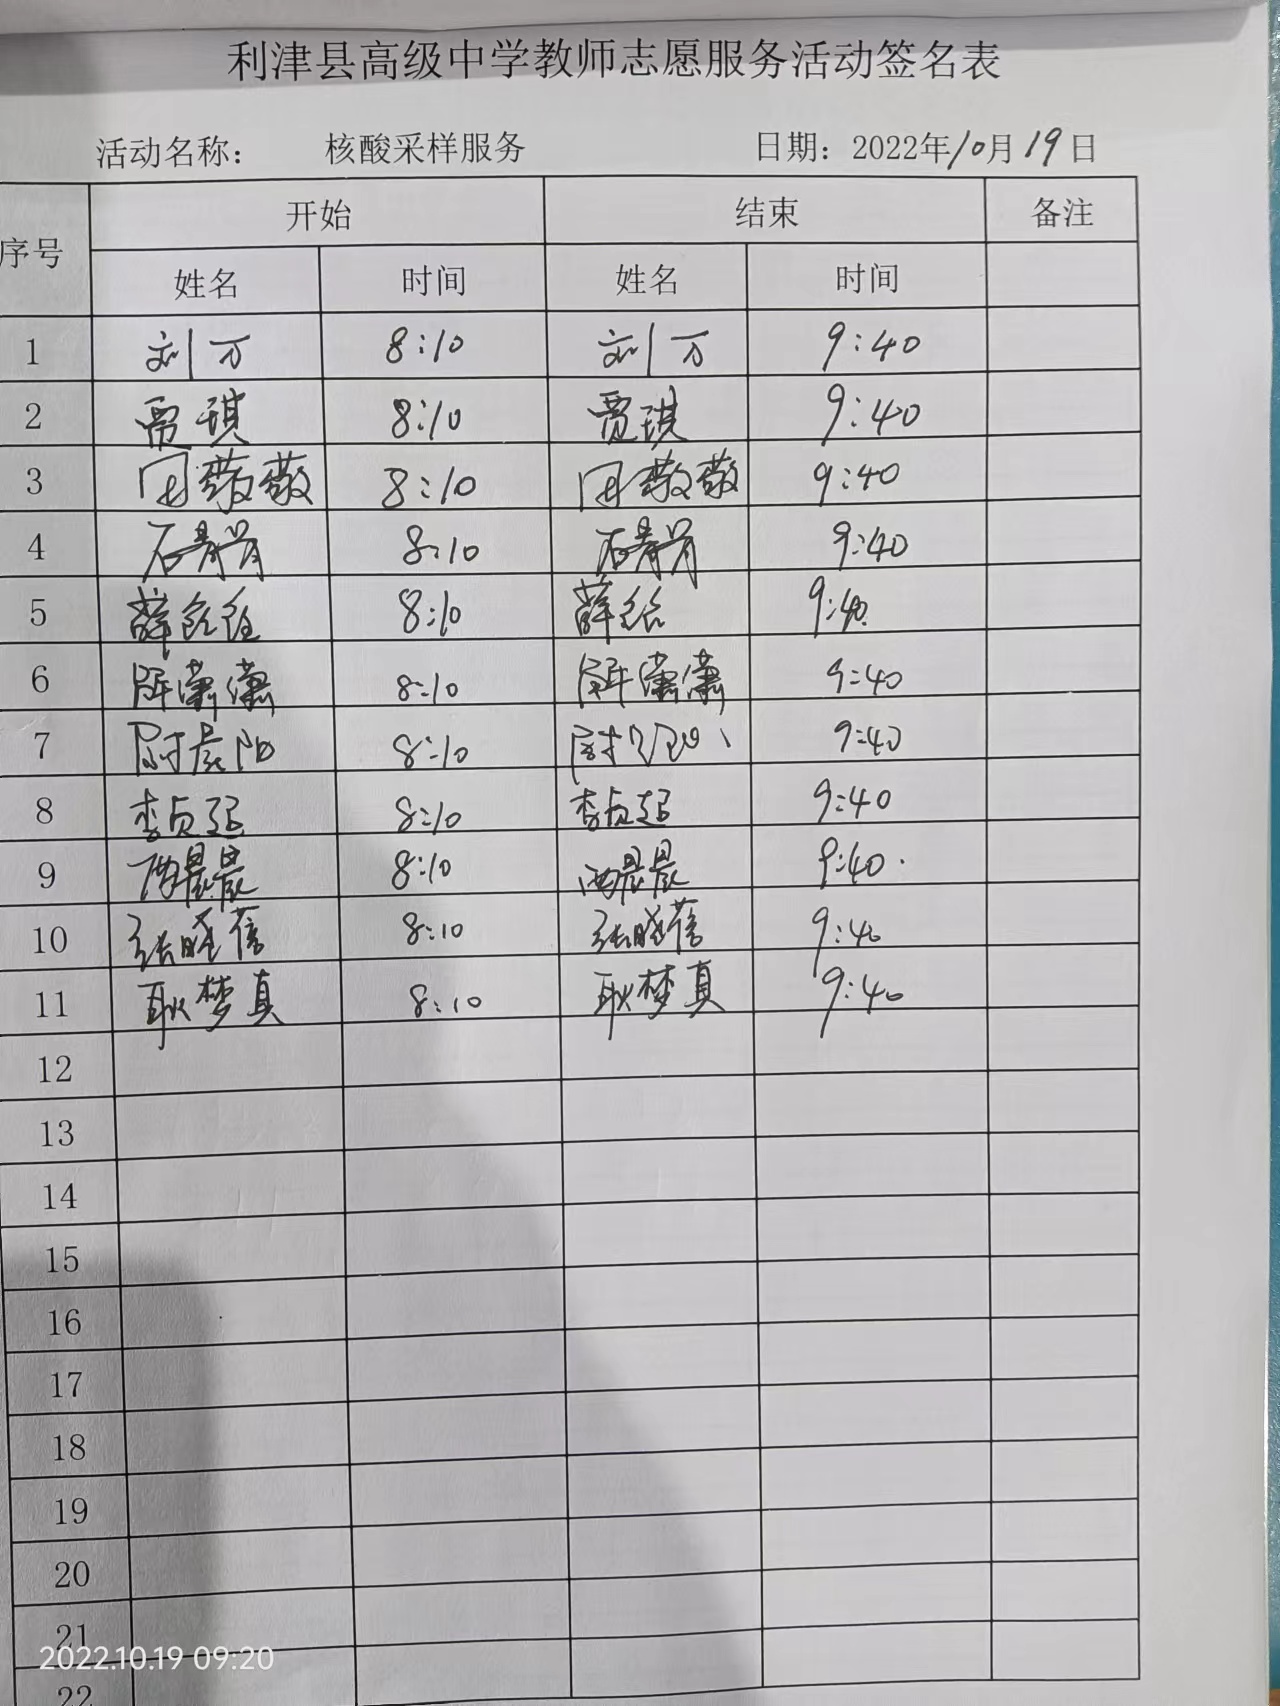 利津县高级中学教师志愿服务活动签名表
活动名称： 核酸采样服务 日期：2022年10月19日
序号 开始 结束 备注
姓名 时间 姓名 时间
1 刘万 8:10 刘万 9:40
2 贾琪 8:10 贾琪 9:40
3 田敬敬 8:10 田敬敬 9:40
4 石 8:10 石 9:40
5 薛 8:10 薛 9:40
6 潇潇 8:10 潇潇 9:40
7 尉晨阳 8:10 尉 9:40
8 李贞 8:10 李贞 9:40
9 晨晨 8:10 晨晨 9:40
10 张晓蓓 8:10 张晓蓓 9:40
11 耿梦真 8:10 耿梦真 9:40
12
13
14
15
16
17
18
19
20
21
2022.10.19 09:20
22